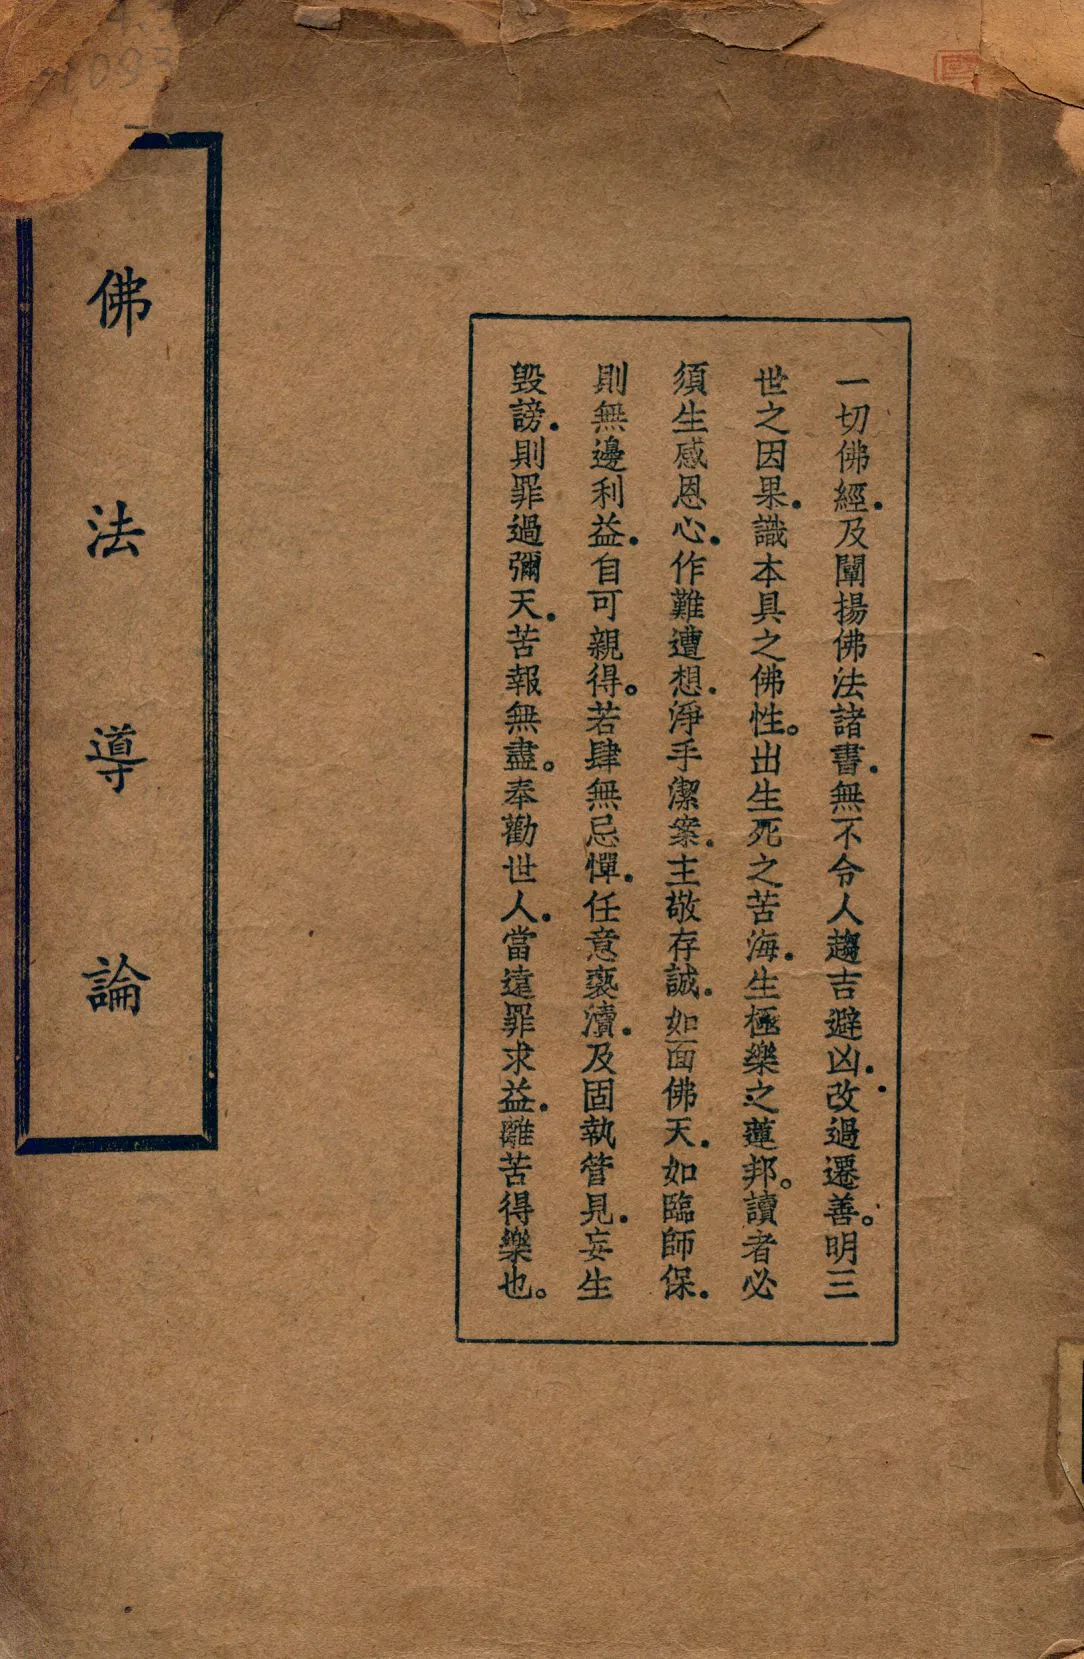 一切佛經.及闡揚佛法諸書.無不令人趨吉避凶.改過遷善。明三
世之因果.識本具之佛性。出生死之苦海.生極樂之蓮邦。讀者必
須生感恩心.作難遭想.淨手潔案.主敬存誠.如面佛天.如臨師保.
則無邊利益.自可親得。若肆無忌憚.任意褻瀆.及固執管見.妄生
毀謗.則罪過彌天.苦報無盡。奉勸世人.當遠罪求益.離苦得樂也。
佛法導論